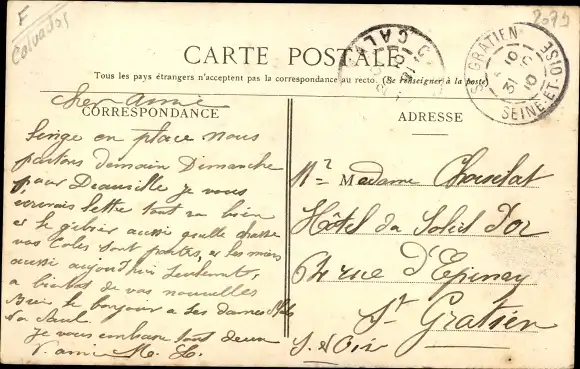 F
Calvados
2079
CARTE POSTALE
Tous les pays étrangers n'acceptent pas la correspondance au recto. (Se renseigner à la poste)
CORRESPONDANCE
ADRESSE
ST GRATIEN
31 10 10
SEINE-ET-OISE
CAL
cher amie
Singe en place nous
partons demain Dimanche
pour Deauville je vous
écrirais lettre tout va bien
et le gibier aussi quelle chasse
vos colis sont partis, et les miens
aussi aujourd'hui seulement,
a bientot de vos nouvelles
Bien le bonjour a ses dames
Paul
je vous embrasse tout deux
V. amie M. L.
Madame Chocolat
Hôtel du Soleil D'or
64 rue d'Epinay
St Gratien
S. et Oise